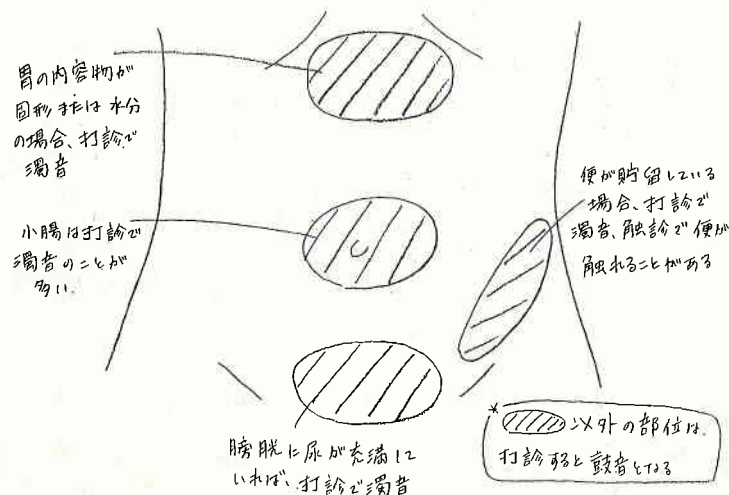 胃の内容物が
固形または水分
の場合、打診で
濁音
小腸は打診で
濁音のことが
多い.
便が貯留している
場合、打診で
濁音、触診で便が
触れることがある
膀胱に尿が充満して
いれば、打診で濁音
* 以外の部位は、
打診すると鼓音となる